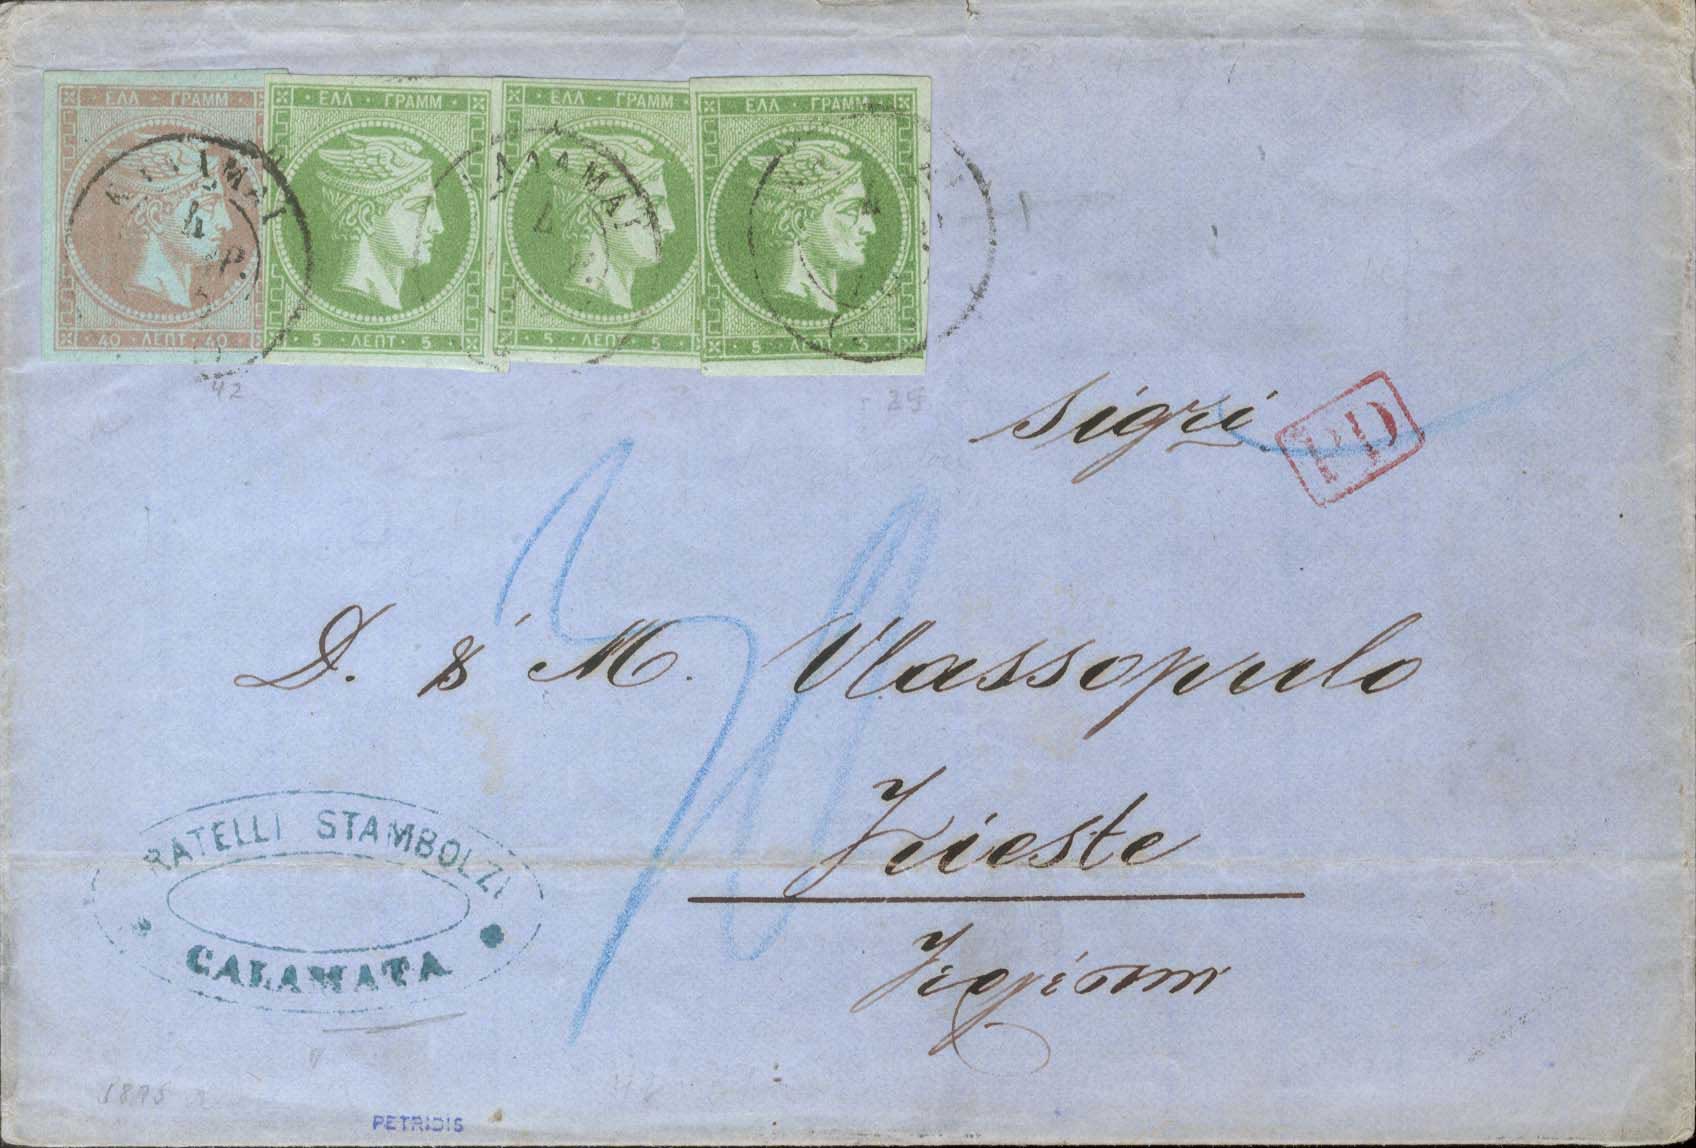 ΕΛΛ · ΓΡΑΜΜ
40 · ΛΕΠΤ · 40
ΕΛΛ · ΓΡΑΜΜ
5 · ΛΕΠΤ · 5
ΕΛΛ · ΓΡΑΜΜ
5 · ΛΕΠΤ · 5
ΕΛΛ · ΓΡΑΜΜ
5 · ΛΕΠΤ · 5
42
Sigri
PD
D. & M. Vlassopulo
Trieste
Τεργέστην
RATELLI STAMBOLZI
CALAMATA
PETRIDIS